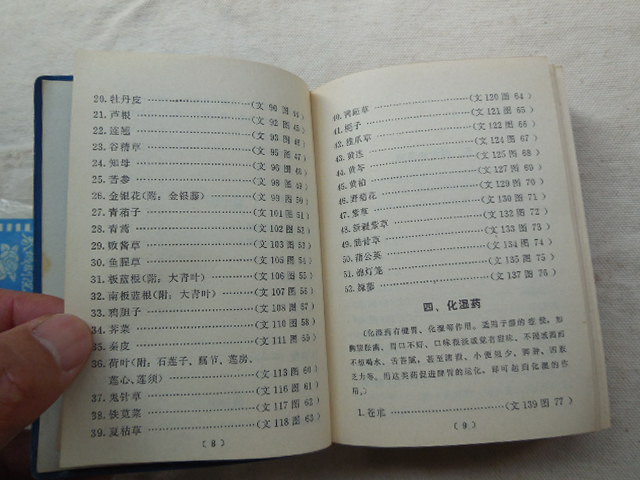 20. 牡丹皮 (文 90 图 44)
21. 芦根 (文 92 图 45)
22. 连翘 (文 93 图 46)
23. 谷精草 (文 95 图 47)
24. 知母 (文 96 图 48)
25. 苦参 (文 98 图 49)
26. 金银花(附：金银藤) (文 99 图 50)
27. 青葙子 (文 101 图 51)
28. 青蒿 (文 102 图 52)
29. 败酱草 (文 103 图 53)
30. 鱼腥草 (文 105 图 54)
31. 板蓝根(附：大青叶) (文 106 图 55)
32. 南板蓝根(附：大青叶) (文 107 图 56)
33. 鸦胆子 (文 108 图 57)
34. 荠菜 (文 110 图 58)
35. 秦皮 (文 111 图 59)
36. 荷叶(附：石莲子、藕节、莲房、
莲心、莲须) (文 113 图 60)
37. 鬼针草 (文 116 图 61)
38. 铁苋菜 (文 117 图 62)
39. 夏枯草 (文 118 图 63)
( 8 )
40. 鸭跖草 (文 120 图 64)
41. 栀子 (文 121 图 65)
42. (文 122 图 66)
43. 黄连 (文 124 图 67)
44. 黄芩 (文 125 图 68)
45. 黄柏 (文 127 图 69)
46. 野菊花 (文 129 图 70)
47. 紫草 (文 130 图 71)
48. 紫草 (文 132 图 72)
49. 草 (文 133 图 73)
50. 蒲公英 (文 134 图 74)
51. 挂灯笼 (文 135 图 75)
52. (文 137 图 76)
四、化湿药
(化湿药有健胃、化湿等作用。适用于湿的症状，如
胸腹胀满、胃口不好、口味很淡或觉有甜味、不渴或渴而
不想喝水、舌苔腻，甚至排湿、小便短少、脚肿、四肢
乏力等。用这类药促进脾胃的运化，即可起到化湿的作
用。)
1. 苍术 (文 139 图 77)
( 9 )